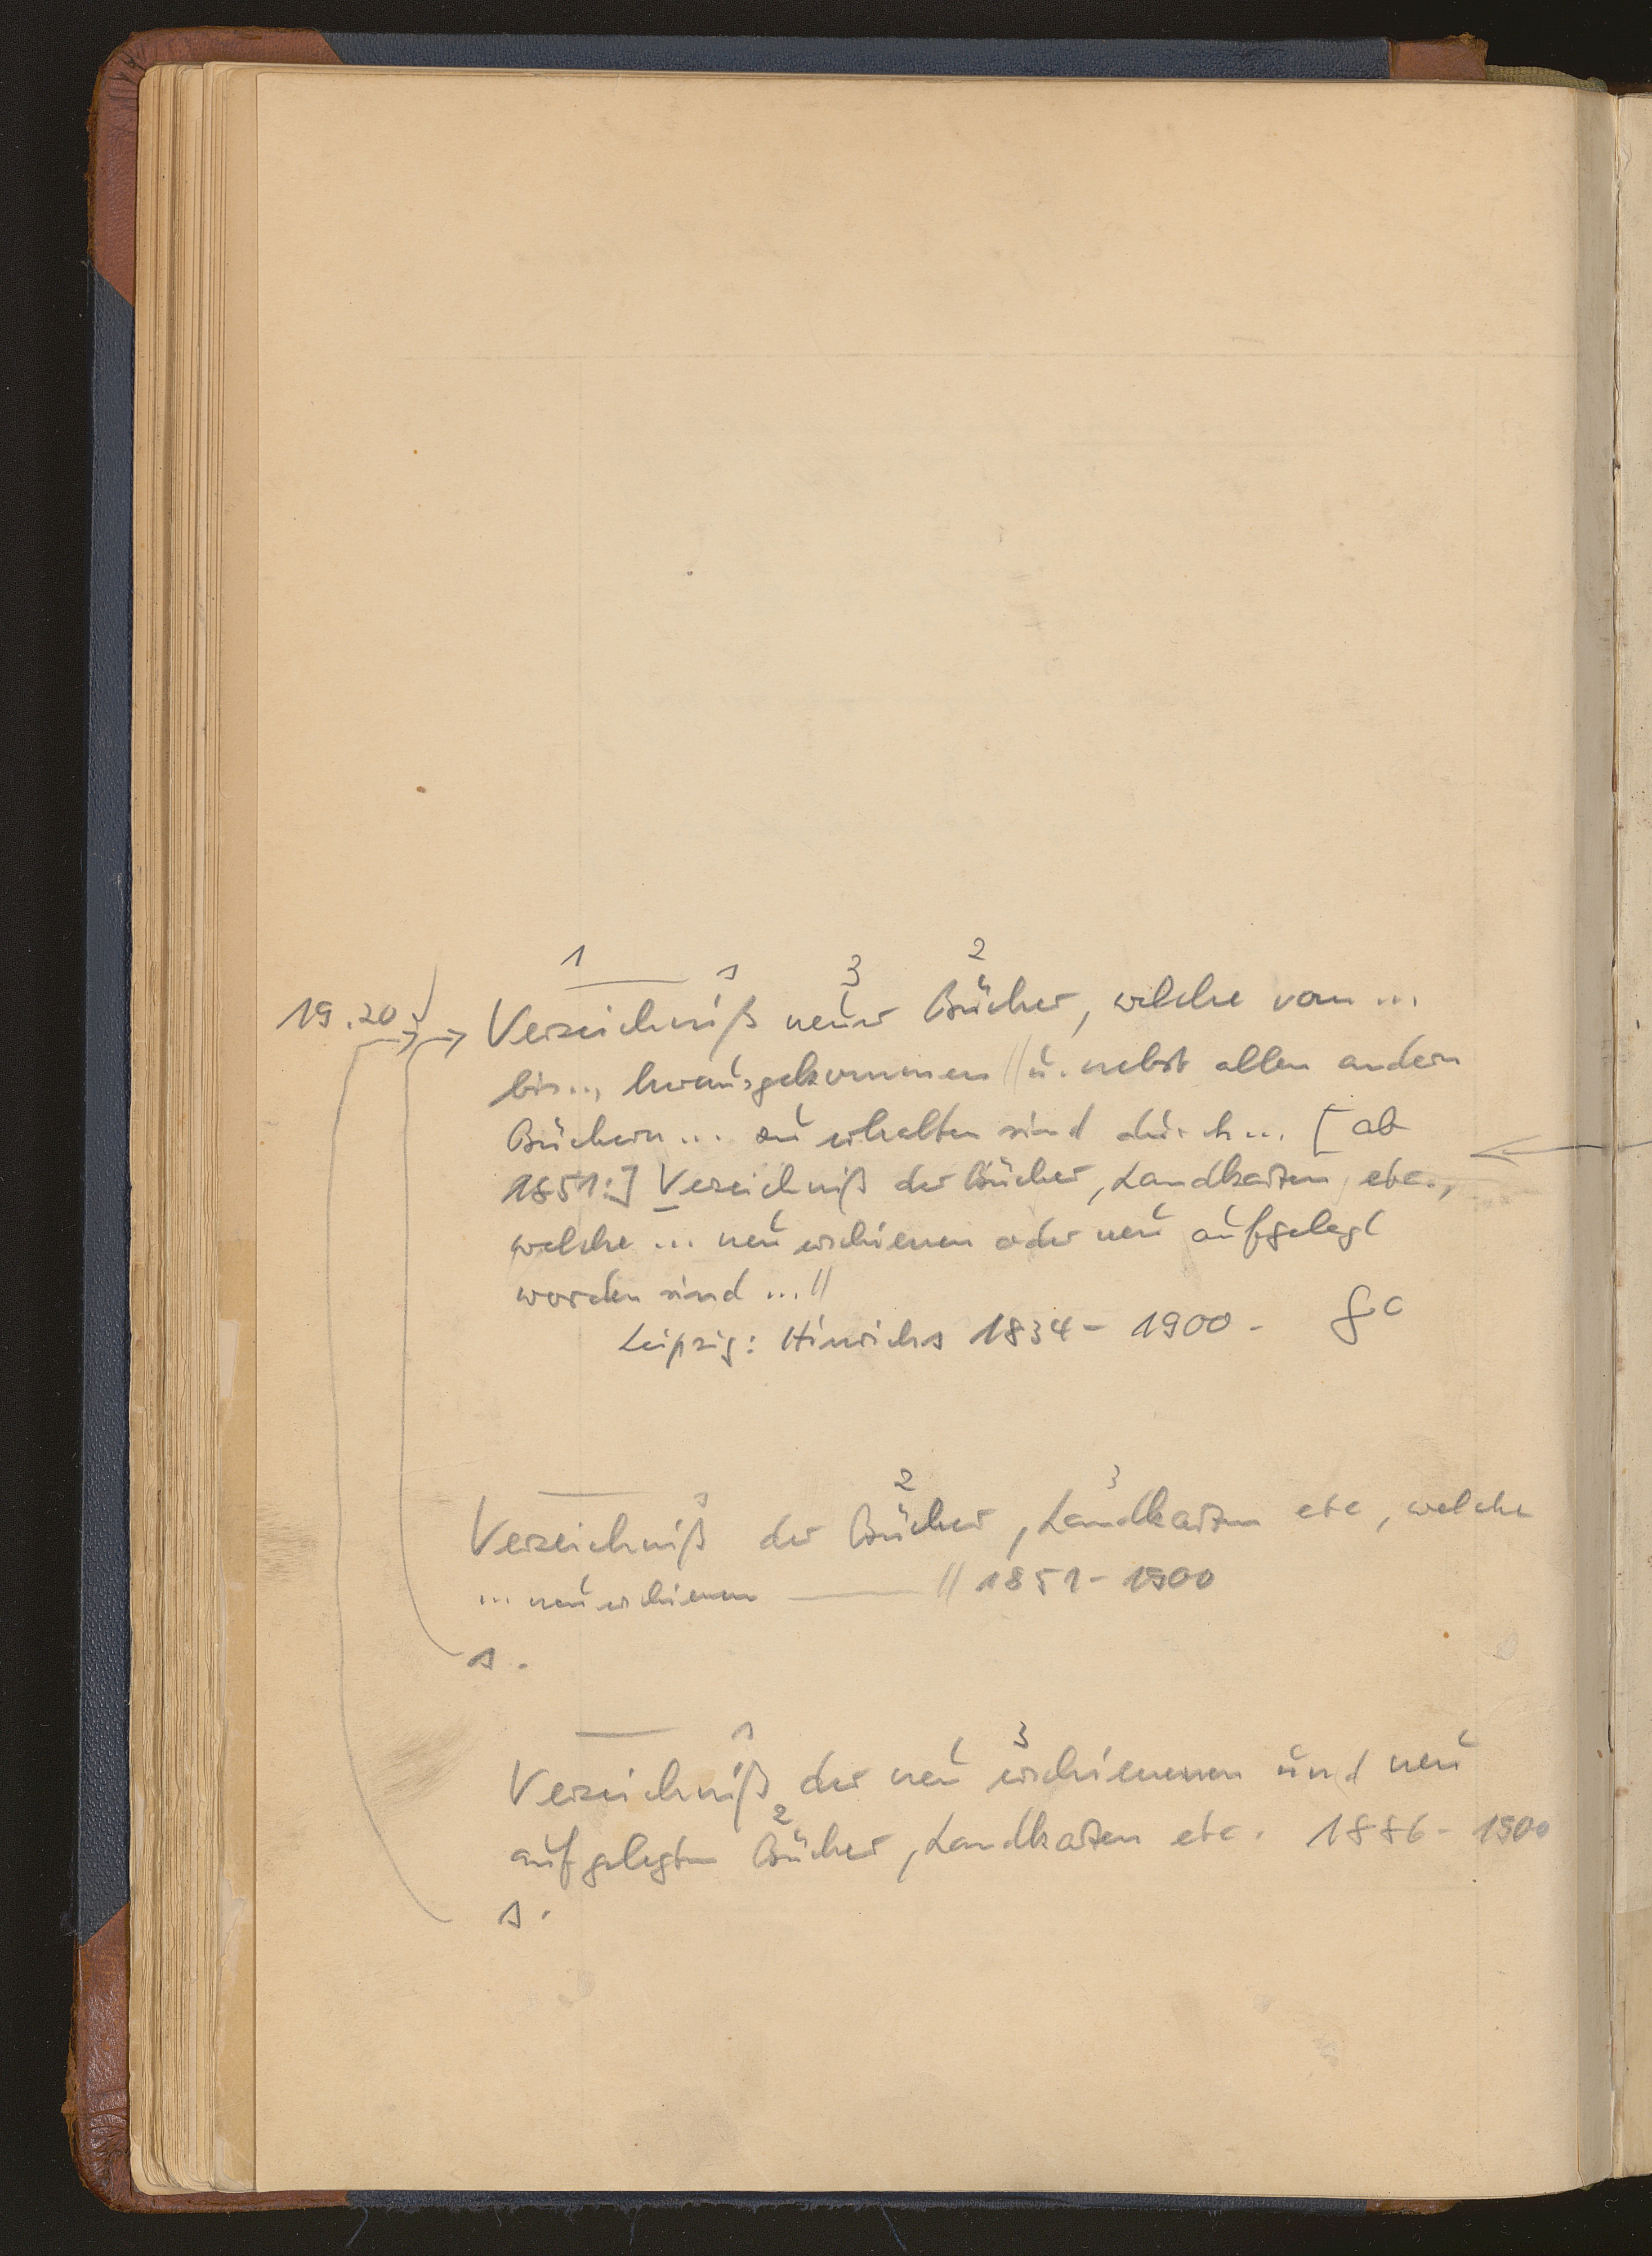 1 1 3 2
19.20. Verzeichniß neuer Bücher, welche vom ...
bis ..., herausgekommen // u. nebst allen andern
Büchern ... zu erhalten sind durch ... [ab
1851:] Verzeichniß der Bücher, Landkarten, etc.,
welche ... neu erschienen oder neu aufgelegt
worden sind ... //
Leipzig: Hinrichs 1834 - 1900 -
1 2 3
Verzeichniß der Bücher, Landkarten etc, welche
... neu erschienen — // 1851 - 1900
s.
1 3
Verzeichniß der neu erschienenen und neu
2
aufgelegten Bücher, Landkarten etc. 1886 - 1900
s.